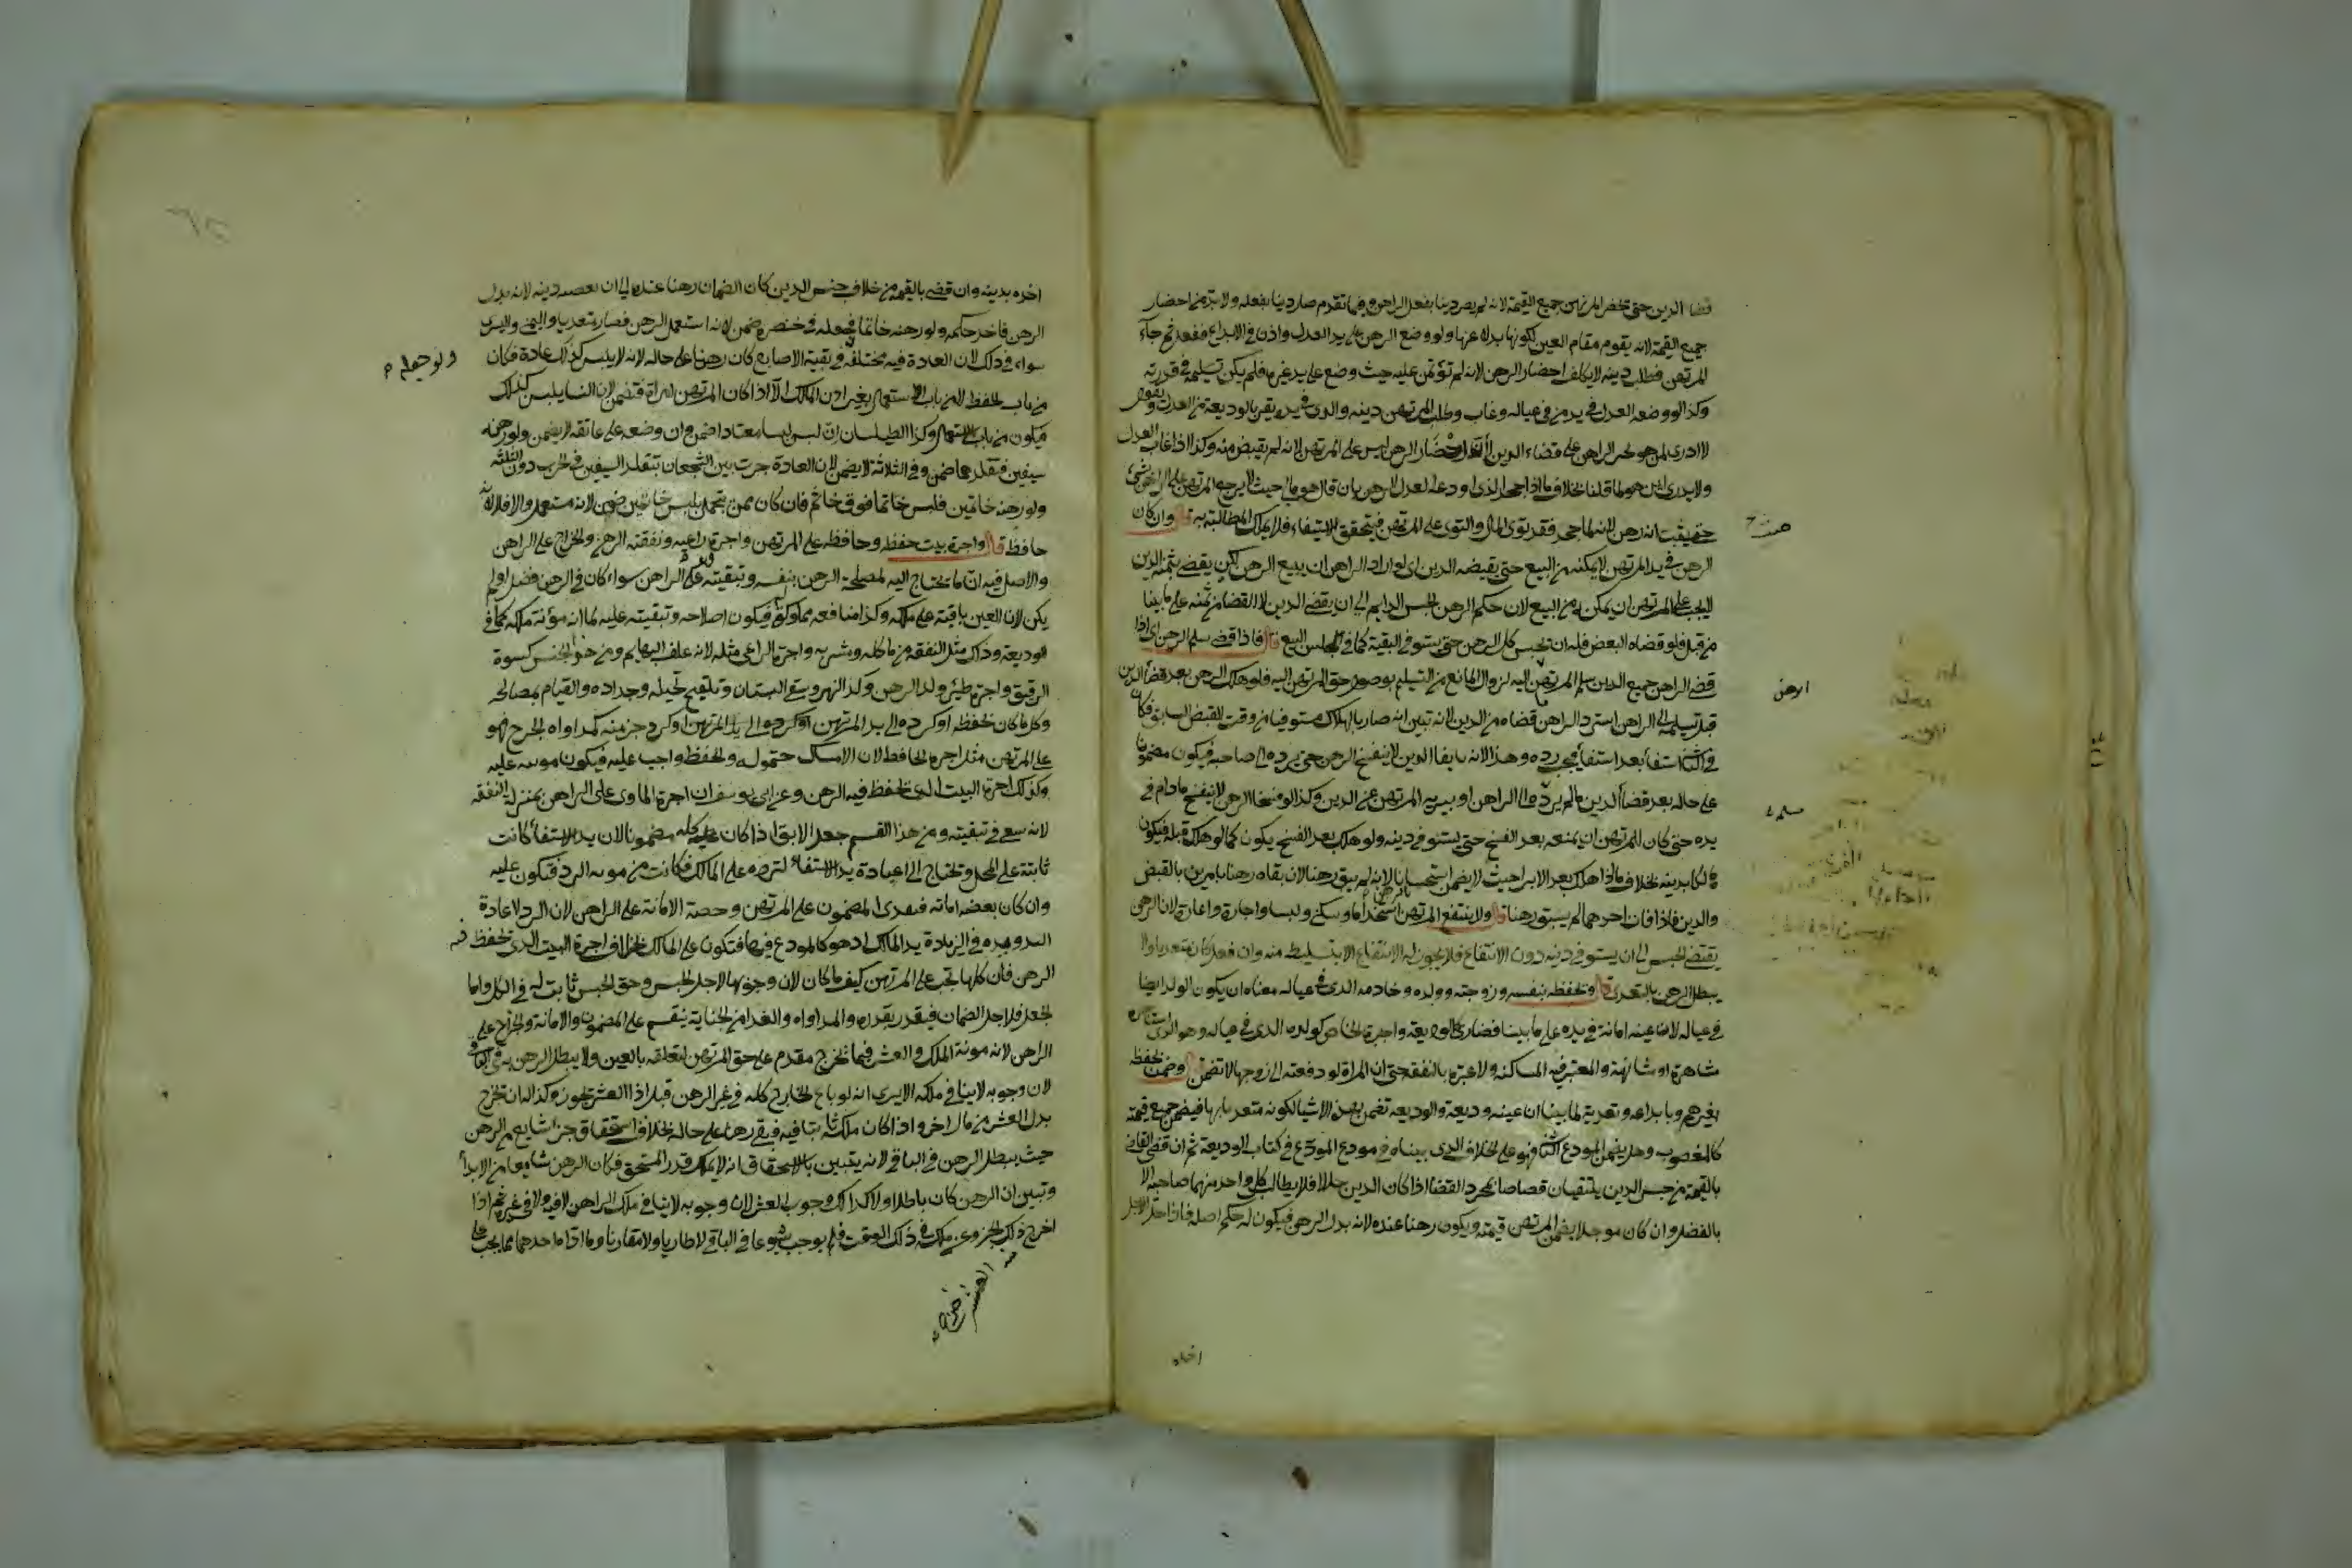 قضا الدين حتى يحضر المرتهن جميع القيمة لانه لم يصر دينا بفعل الراهن وفيما تقدم صار دينا بفعله ولا بد من احضار
جميع القيمة لانه يقوم مقام العين لكونها بدلا عنها ولو وضع الرهن على يد العدل واذن في الايداع ففعل ثم جاء
المرتهن فطلب دينه لا يكلف احضار الرهن لانه لم يؤتمن عليه حيث وضع على يد غيره فلم يكن تسليمه في قدرته
وكذا لو وضعه العدل في يد من في عياله وغاب وطلب المرتهن دينه والذي في يده يقر بالوديعة من العدل ويقول
لا ادري لمن هو يجبر الراهن على قضاء الدين لان احضار الرهن ليس على المرتهن لانه لم يقبض منه وكذا اذا غاب العدل
ولا يدرى اين هو لما قلنا بخلاف ما اذا جحد الذي اودعه العدل الرهن بان قال هو مالي حيث لا يرجع المرتهن على الراهن بشئ
حتى يثبت انه رهن لانه لما جحد فقد توى المال والتوى على المرتهن فيتحقق الاستيفاء فلا يملك المطالبة به قال وان كان
الرهن في يد المرتهن لا يمكنه من البيع حتى يقبضه الدين اى لو اراد الراهن ان يبيع الرهن لكي يقضي بثمنه الدين
لا يجب على المرتهن ان يمكنه من البيع لان حكم الرهن الحبس الدايم الى ان يقضى الدين لا القضا من ثمنه على ما بينا
من قبل فلو قضاه البعض فله ان يحبس كل الرهن حتى يستوفي البقية كما في حبس المبيع قال فاذا قضى سلم الرهن اى اذا
قضى الراهن جميع الدين سلم المرتهن اليه لزوال المانع من التسليم بوصول حق المرتهن اليه فلو هلك الرهن بعد قضا الدين
قبل تسليمه الى الراهن استرد الراهن ما قضاه من الدين لانه تبين انه صار بالهلاك مستوفيا من وقت القبض السابق فكان
في الثاني استيفا بعد استيفا فيجب رده وهذا لانه بايفا الدين لا ينفسخ الرهن حتى يرده الى صاحبه فيكون مضمونا
على حاله بعد قضا الدين ما لم يرده الى الراهن او يبريه المرتهن عن الدين وكذا لو فسخا الرهن لا ينفسخ ما دام في
يده حتى كان للمرتهن ان يمنعه بعد الفسخ حتى يستوفي دينه ولو هلك بعد الفسخ يكون كما لو هلك قبله فيكون
هالكا بدينه بخلاف ما اذا هلك بعد الابرا حيث لا يضمن استحسانا لانه لم يبق رهنا لان بقاه رهنا بامرين بالقبض
والدين فاذا فات احدهما لم يبق رهنا قال ولا ينتفع المرتهن استخداما وسكنى ولبسا واجارة واعارة لان الرهن
يقتضي الحبس الى ان يستوفي دينه دون الانتفاع فلا يجوز له الانتفاع الا بتسليط منه وان فعل كان متعديا ولا
يبطل الرهن بالتعدي قال ويحفظه بنفسه وزوجته وولده وخادمه الذي في عياله معناه ان يكون الولد ايضا
في عياله لان عينه امانة في يده على ما بينا فصار كالوديعة واجيره الخاص كولده الذي في عياله وهو الذي استاجره
مشاهرة او مسانهة والمعتبر فيه المساكنة ولا عبرة بالنفقة حتى ان المراة لو دفعته الى زوجها لا تضمن قال وضمن بحفظه
بغيرهم وبايداعه وتعديه لما بينا ان عينه وديعة والوديعة تضمن بهذه الاشيا لكونه متعديا بها فيضمن جميع قيمته
كالمغصوب وهل يضمن المودع الثاني فهو على الخلاف الذي بيناه في مودع المودع في كتاب الوديعة ثم ان قضى القاضي
بالقيمة من جنس الدين يلتقيان قصاصا بمجرد القضا اذا كان الدين حالا فلا يطالب كل واحد منهما صاحبه الا
بالفضل وان كان موجلا يضمن المرتهن قيمته ويكون رهنا عنده لانه بدل الرهن فيكون له حكم اصله فاذا حل الاجل
الرهن
اخذه
اخذه بدينه وان قضى بالقيمة من خلاف جنس الدين كان الضمان رهنا عنده الى ان يقضيه دينه لانه بدل
الرهن فاخذ حكمه ولو رهنه خاتما فجعله في خنصره ضمن لانه استعمل الرهن فصار متعديا واليمنى واليسرى
سواء في ذلك لان العادة فيه مختلفة وفي بقية الاصابع كان رهنا على حاله لانه لا يلبس كذلك عادة فكان
من باب الحفظ لا من باب الاستعمال بغير اذن المالك الا اذا كان المرتهن امراة فتضمن لان النسا يلبسن كذلك
فيكون من باب الاستعمال وكذا الطيلسان ان لبس لبسا معتادا ضمن وان وضعه على عاتقه لا يضمن ولو رهنه
سيفين فتقلدهما ضمن وفي الثلاثة لا يضمن لان العادة جرت بين الشجعان بتقلد السيفين في الحرب دون الثلثة
ولو رهنه خاتمين فلبس خاتما فوق خاتم فان كان ممن يتجمل بلبس خاتمين ضمن لانه مستعمل والا فلا لانه
حافظ قال واجرة بيت حفظه وحافظه على المرتهن واجرة راعيه ونفقته الرهن والخراج على الراهن
والاصل فيه ان ما يحتاج اليه لمصلحة الرهن بنفسه وتبقيته فعلى الراهن سواء كان في الرهن فضل او لم
يكن لان العين باقية على ملكه وكذا منافعه مملوكة له فيكون اصلاحه وتبقيته عليه لما انه مؤنة ملكه كما في
الوديعة وذلك مثل النفقة من ماكله ومشربه واجرة الراعي مثله لانه علف البهايم ومن هذا الجنس كسوة
الرقيق واجرة ظئر ولد الرهن وكري النهر وسقي البستان وتلقيح نخيله وجداده والقيام بمصالحه
وكل ما كان لحفظه او لرده الى يد المرتهن او لرد جزء منه كمداواة الجرح فهو
على المرتهن مثل اجرة الحافظ لان الامساك حق له والحفظ واجب عليه فيكون مونته عليه
وكذلك اجرة البيت الذي يحفظ فيه الرهن وعن ابي يوسف ان اجرة الماوى على الراهن بمنزلة النفقة
لانه سعى في تبقيته ومن هذا القسم جعل الابق اذا كان كله مضمونا لان يد الاستيفا كانت
ثابتة على المحل ويحتاج الى اعادة يد الاستيفاء لترده على المالك فكانت من مونة الرد فتكون عليه
وان كان بعضه امانة فبقدر المضمون على المرتهن وحصة الامانة على الراهن لان الرد لاعادة
اليد ويده في الزيادة يد المالك اذ هو كالمودع فيها فتكون على المالك بخلاف اجرة البيت الذي يحفظ فيه
الرهن فان كلها تجب على المرتهن كيف ما كان لان وجوبها لاجل الحبس وحق الحبس ثابت له في الكل واما
الجعل فلاجل الضمان فيقدر بقدره والمداواة والفدا من الجناية ينقسم على المضمون والامانة والخراج على
الراهن لانه مونة الملك والعشر فيما يخرج مقدم على حق المرتهن لتعلقه بالعين ولا يبطل الرهن به في الباقي
لان وجوبه لا ينافي ملكه الا يرى انه لو باع الخارج كله في غير الرهن قبل ادا العشر يجوز وكذا له ان يخرج
بدل العشر من مال اخر واذا كان ملكه ثابتا فيه فبقي رهنا على حاله بخلاف استحقاق جزء شايع من الرهن
حيث يبطل الرهن في الباقي لانه يتبين بالاستحقاق انه لا يملك قدر المستحق فكان الرهن شايعا من الابتدا
وتبين ان الرهن كان باطلا ولا كذلك وجوب العشر لان وجوبه لا ينافي ملك الراهن لا فيه ولا في غيره ثم اذا
اخرج ذلك الجزو عن ملكه في ذلك الوقت فلم يوجب شيوعا في الباقي لا طاريا ولا مقارنا وما اداه احدهما مما يجب على